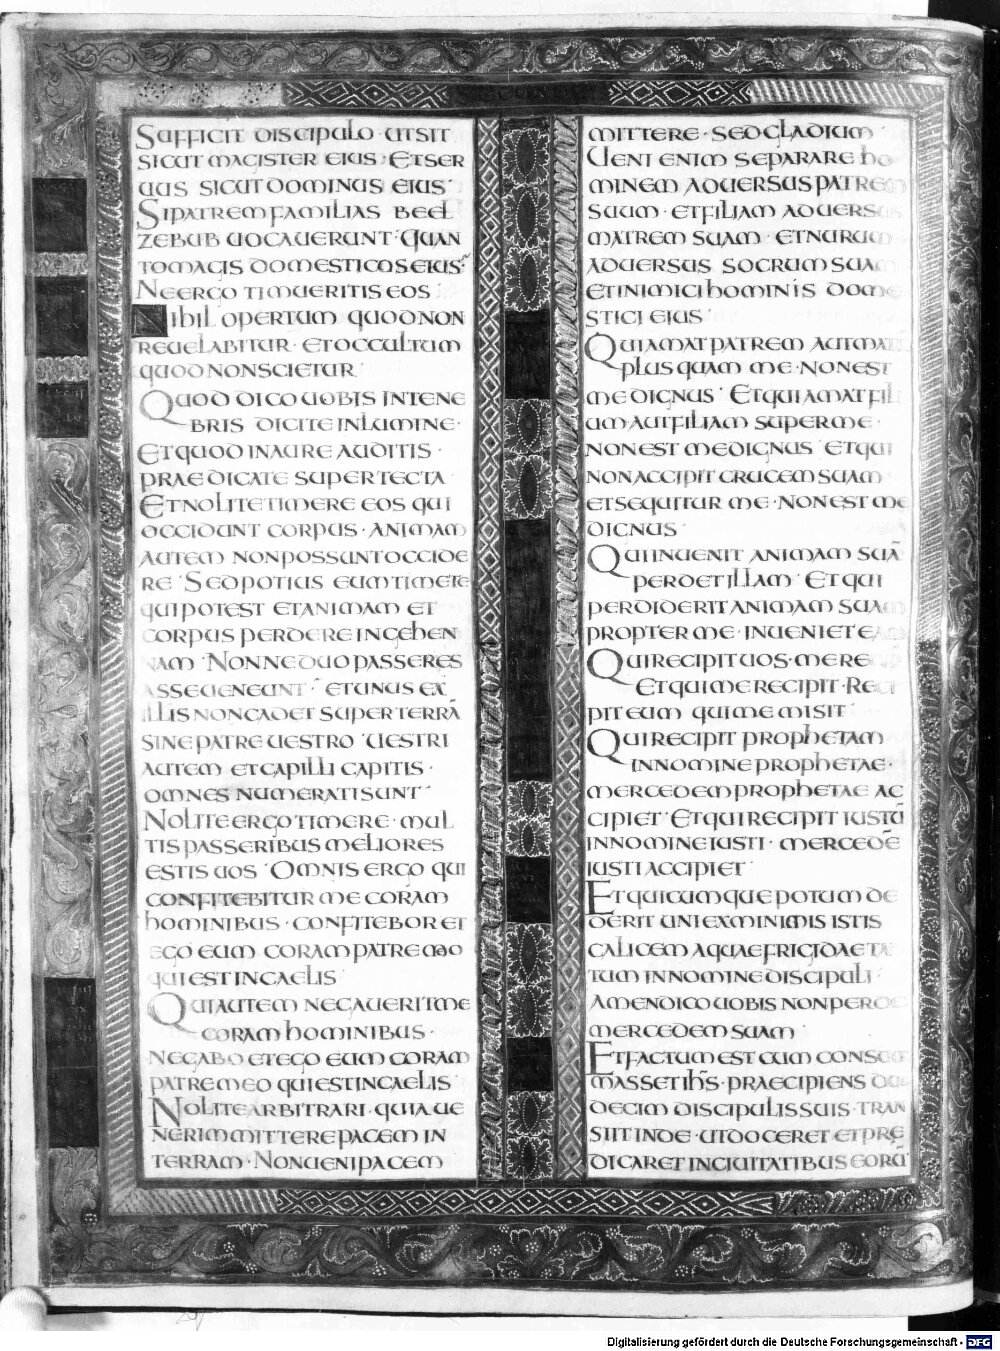 SUFFICIT DISCIPULO · UTSIT
SICUT MAGISTER EIUS · ET SER
UUS SICUT DOMINUS EIUS ·
SI PATREM FAMILIAS BEEL
ZEBUB UOCAUERUNT · QUAN
TO MAGIS DOMESTICOS EIUS ·
NE ERGO TIMUERITIS EOS ·
NIHIL OPERTUM QUOD NON
REUELABITUR · ET OCCULTUM
QUOD NON SCIETUR ·
QUOD DICO UOBIS IN TENE
BRIS DICITE IN LUMINE ·
ET QUOD IN AURE AUDITIS ·
PRAEDICATE SUPER TECTA ·
ET NOLITE TIMERE EOS QUI
OCCIDUNT CORPUS · ANIMAM
AUTEM NON POSSUNT OCCIDE
RE · SED POTIUS EUM TIMETE
QUI POTEST ET ANIMAM ET
CORPUS PERDERE IN GEHEN
NAM · NONNE DUO PASSERES
ASSE UENEUNT · ET UNUS EX
ILLIS NON CADET SUPER TERRĀ
SINE PATRE UESTRO · UESTRI
AUTEM ET CAPILLI CAPITIS ·
OMNES NUMERATI SUNT ·
NOLITE ERGO TIMERE · MUL
TIS PASSERIBUS MELIORES
ESTIS UOS · OMNIS ERGO QUI
CONFITEBITUR ME CORAM
HOMINIBUS · CONFITEBOR ET
EGO EUM CORAM PATRE MEO
QUI EST IN CAELIS ·
QUI AUTEM NEGAUERIT ME
CORAM HOMINIBUS ·
NEGABO ET EGO EUM CORAM
PATRE MEO QUI EST IN CAELIS ·
NOLITE ARBITRARI · QUIA UE
NERIM MITTERE PACEM IN
TERRAM · NON UENI PACEM
MITTERE · SED GLADIUM ·
UENI ENIM SEPARARE HO
MINEM ADUERSUS PATREM
SUUM · ET FILIAM ADUERSUS
MATREM SUAM · ET NURUM
ADUERSUS SOCRUM SUAM
ET INIMICI HOMINIS DOME
STICI EIUS ·
QUI AMAT PATREM AUT MATREM
PLUS QUAM ME · NON EST
ME DIGNUS · ET QUI AMAT FILI
UM AUT FILIAM SUPER ME ·
NON EST ME DIGNUS · ET QUI
NON ACCIPIT CRUCEM SUAM ·
ET SEQUITUR ME · NON EST ME
DIGNUS ·
QUI INUENIT ANIMAM SUĀ
PERDET ILLAM · ET QUI
PERDIDERIT ANIMAM SUAM
PROPTER ME · INUENIET EAM
QUI RECIPIT UOS · ME RE
ET QUI ME RECIPIT · RECI
PIT EUM QUI ME MISIT ·
QUI RECIPIT PROPHETAM
IN NOMINE PROPHETAE ·
MERCEDEM PROPHETAE AC
CIPIET · ET QUI RECIPIT IUSTŪ
IN NOMINE IUSTI · MERCEDĒ
IUSTI ACCIPIET ·
ET QUICUMQUE POTUM DE
DERIT UNI EX MINIMIS ISTIS
CALICEM AQUAE FRIGIDAE TA
TUM IN NOMINE DISCIPULI ·
AMEN DICO UOBIS NON PERDET
MERCEDEM SUAM ·
ET FACTUM EST CUM CONSU
MASSET IHS̄ · PRAECIPIENS DUO
DECIM DISCIPULIS SUIS · TRAN
SIIT INDE · UT DOCERET ET PRĘ
DICARET IN CIUITATIBUS EORŪ
Digitalisierung gefördert durch die Deutsche Forschungsgemeinschaft - DFG